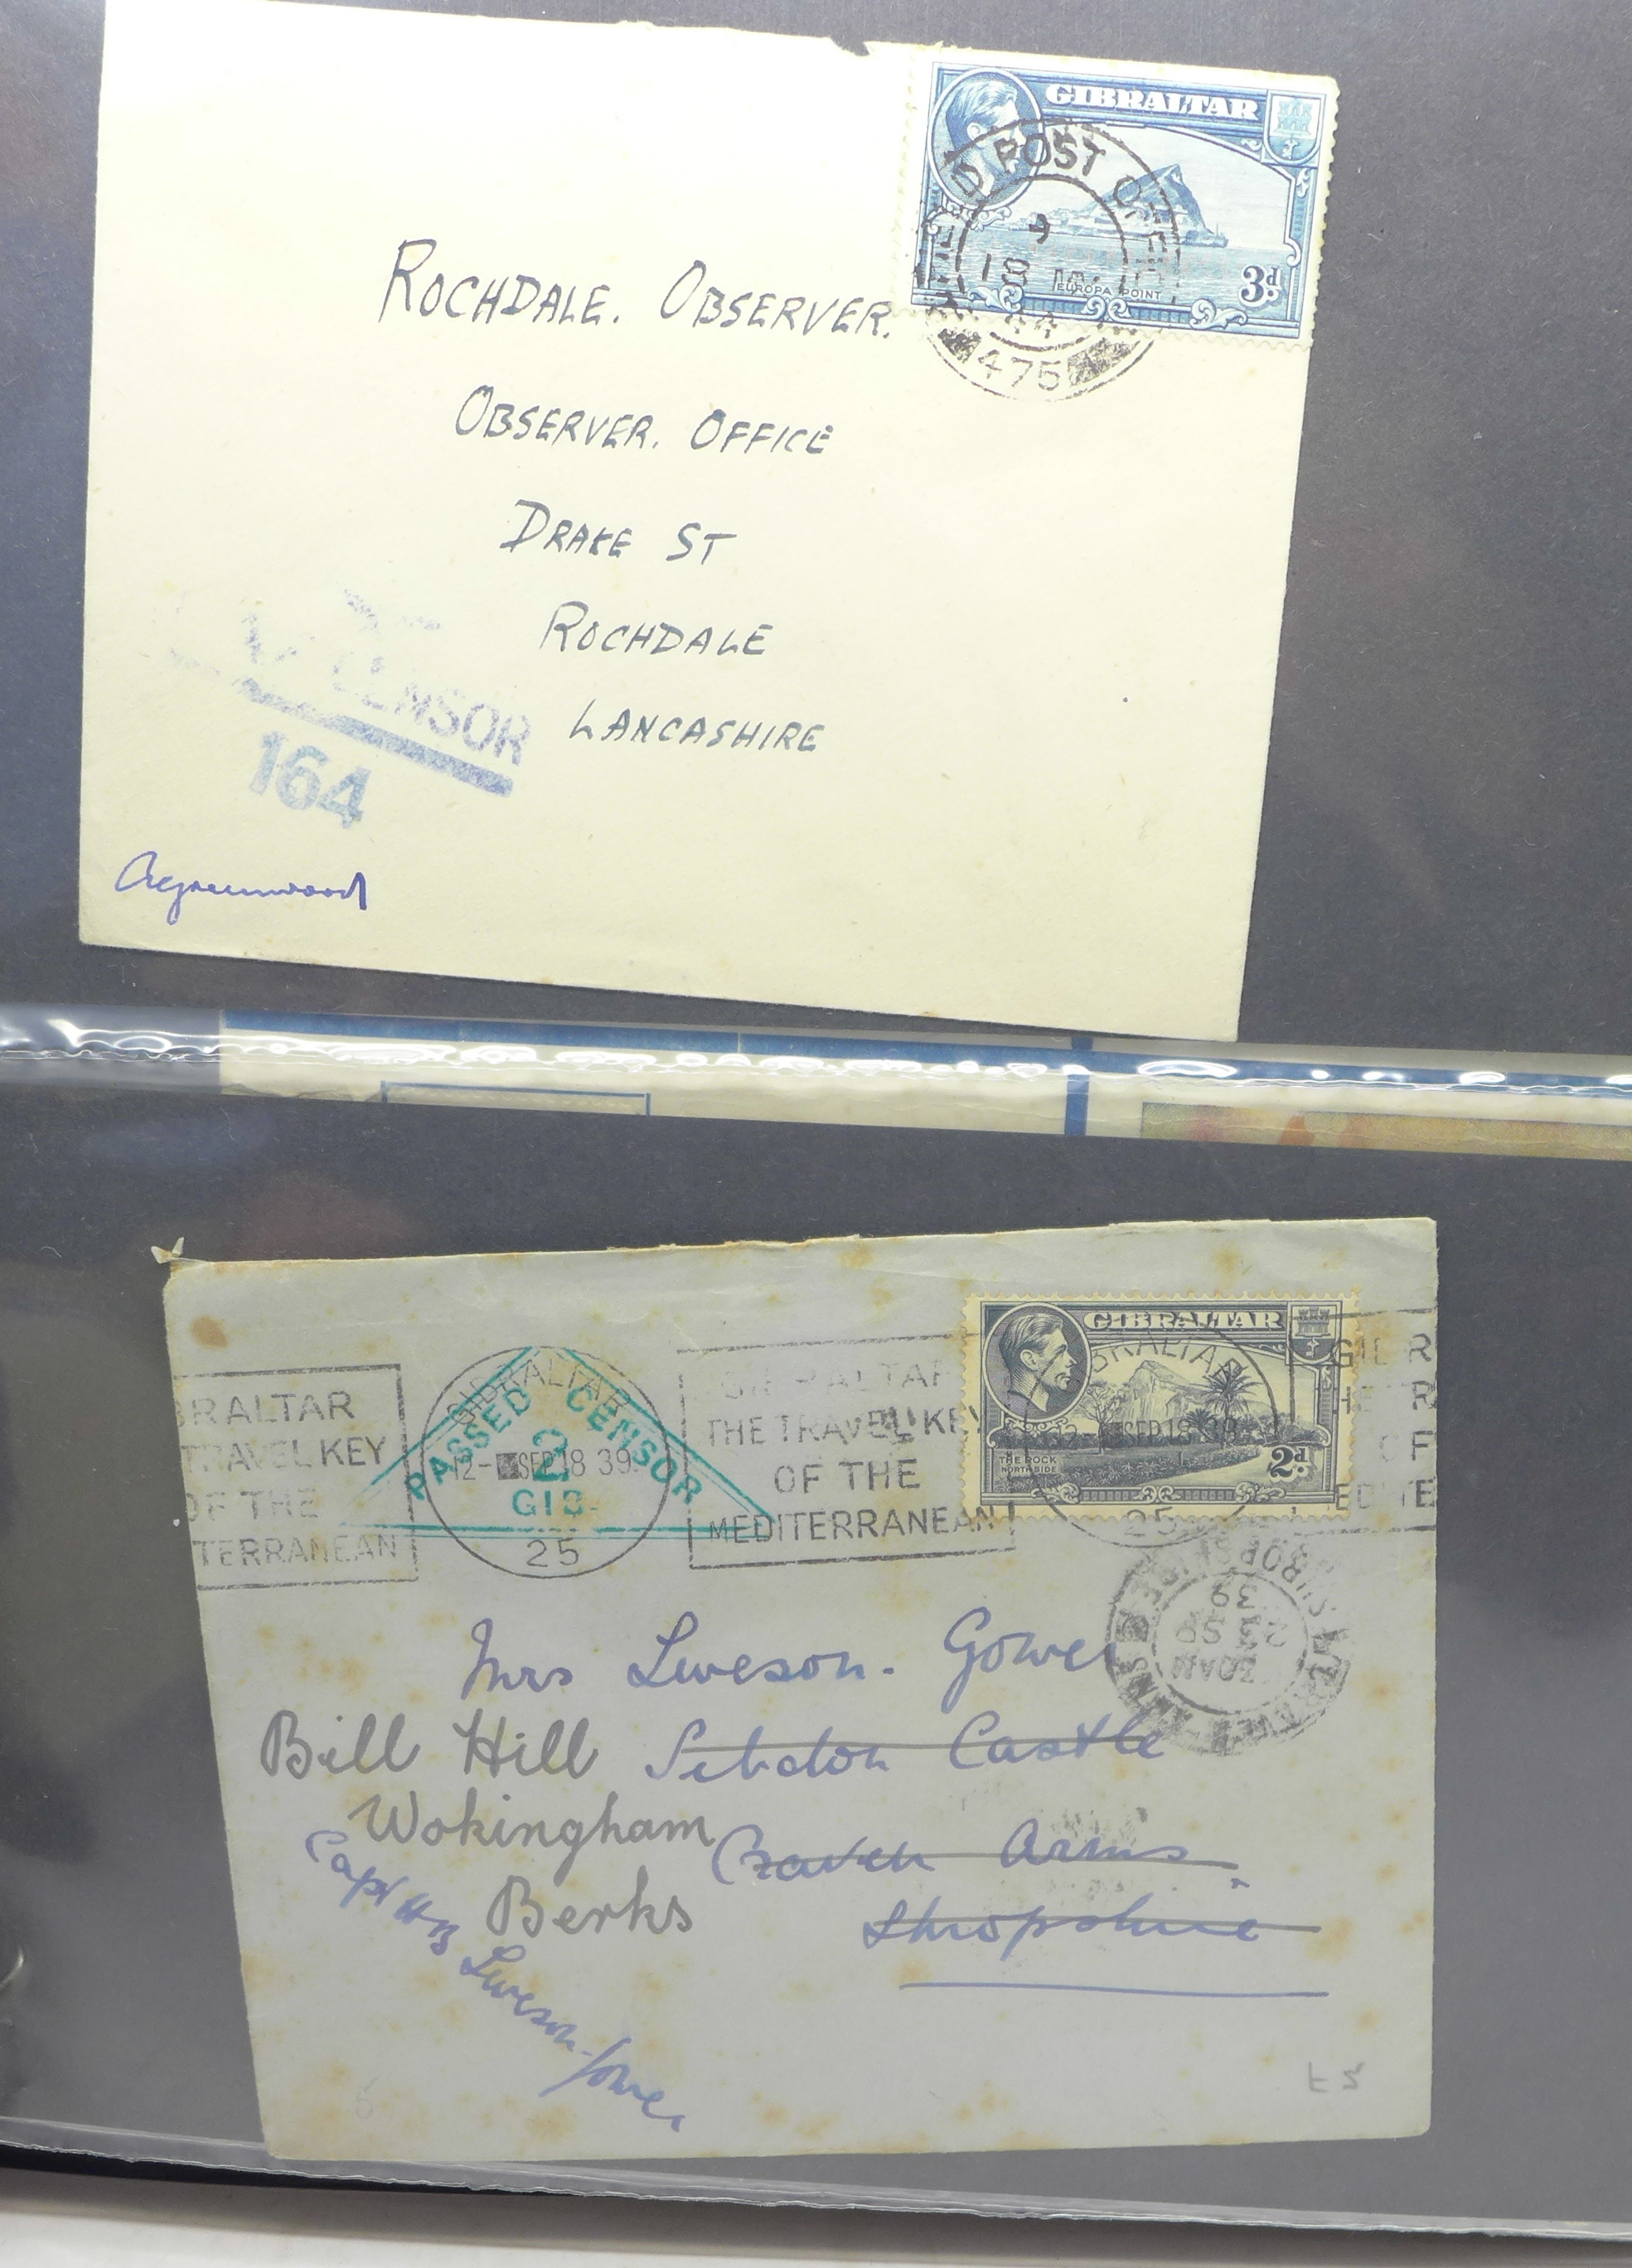 GIBRALTAR
D POST OFFI
18
44
EUROPA POINT
3d
475
ROCHDALE. OBSERVER.
OBSERVER. OFFICE
DRAKE ST
ROCHDALE
LANCASHIRE
CENSOR
164
Agreenwood
GIBRALTAR
THE ROCK
NORTH SIDE
2d
BRALTAR
SEP 18 39
25
RALTAR
TRAVEL KEY
OF THE
TERRANEAN
GIBRALTAR
12- SEP 18 39
25
PASSED CENSOR
2
GIB.
GIBRALTAR
THE TRAVEL KEY
OF THE
MEDITERRANEAN
30AM
23 SP
39
SHROPSHIRE
Mrs Leveson-Gower
Bill Hill Sibdon Castle
Wokingham Craven Arms.
Berks Shropshire
Capt HB Leveson-Gower